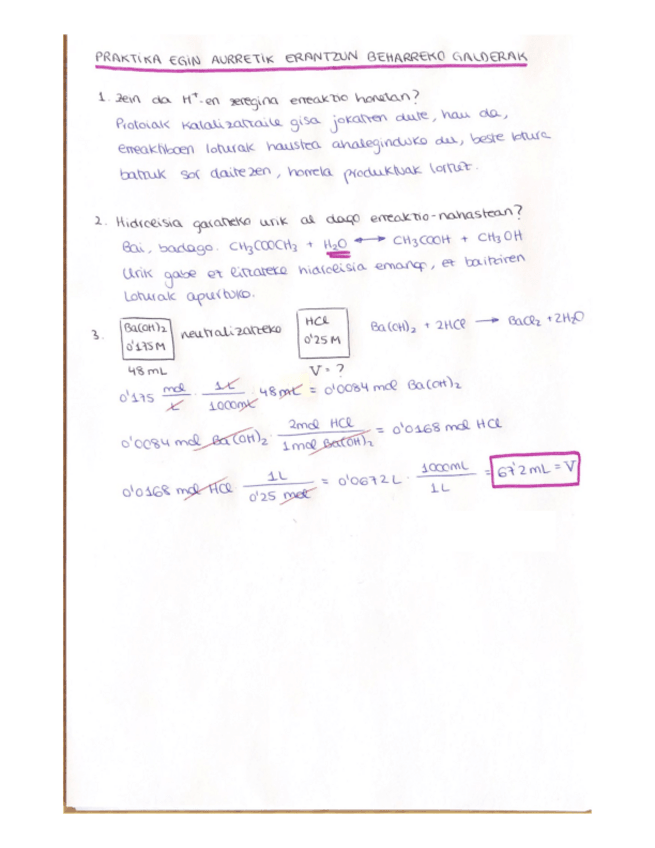 PRAKTIKA EGIN AURRETIK ERANTZUN BEHARREKO GALDERAK
1. Zein da H⁺-en zeregina erreaktio honetan?
Protoiak katalizatzaile gisa jokatzen dute, hau da,
erreaktiboen loturak haustea ahaleginduko du, beste lotura
batzuk sor daitezen, horrela produktuak lortuz.
2. Hidrolisia garatzeko urik al dago erreaktio-nahastean?
Bai, badago. CH₃COOCH₃ + H₂O ⟷ CH₃COOH + CH₃OH
Urik gabe ez litzateke hidrolisia emango, ez baitziren
loturak apurtuko.
3. Ba(OH)₂ 0'175M neutralizatzeko HCl 0'25M Ba(OH)₂ + 2HCl → BaCl₂ + 2H₂O
48 mL V = ?
0'175 mol/L · 1L/1000mL · 48mL = 0'0084 mol Ba(OH)₂
0'0084 mol Ba(OH)₂ · 2mol HCl/1mol Ba(OH)₂ = 0'0168 mol HCl
0'0168 mol HCl · 1L/0'25 mol = 0'0672 L · 1000mL/1L = 67'2 mL = V